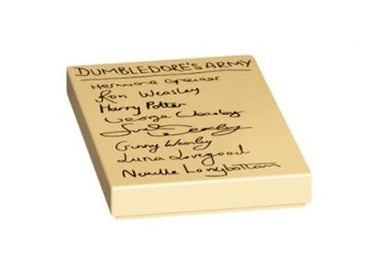 DUMBLEDORE'S ARMY
Hermione Granger
Ron Weasley
Harry Potter
George Weasley
Fred Weasley
Ginny Weasley
Luna Lovegood
Neville Longbottom